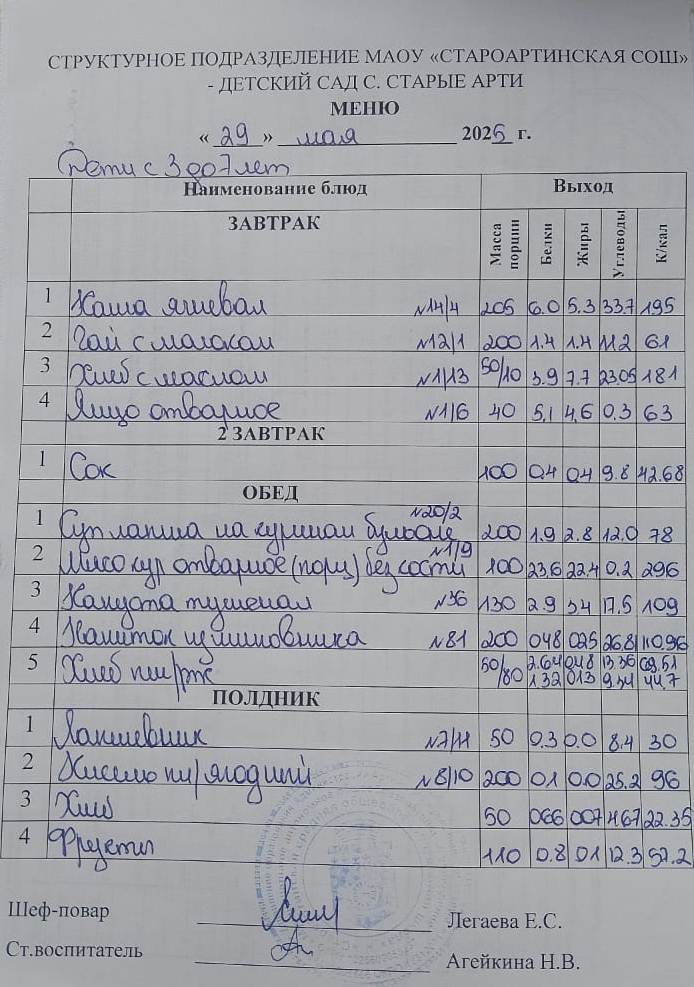 СТРУКТУРНОЕ ПОДРАЗДЕЛЕНИЕ МАОУ «СТАРОАРТИНСКАЯ СОШ»
- ДЕТСКИЙ САД С. СТАРЫЕ АРТИ
МЕНЮ
« 29 » мая 2025 г.
Дети с 3 до 7 лет
Наименование блюд Выход
ЗАВТРАК Масса порции Белки Жиры Углеводы К/кал
1 Каша ячневая №14/4 205 6.0 5.3 33.7 195
2 Чай с молоком №12/1 200 1.4 1.4 11.2 61
3 Хлеб с маслом №1/13 50/10 3.9 7.7 23.05 181
4 Яйцо отварное №1/6 40 5,1 4,6 0.3 63
2 ЗАВТРАК
1 Сок 100 0.4 0.4 9.8 42.68
ОБЕД
1 Суп лапша на курином бульоне №20/2 200 1.9 2.8 12.0 78
2 Мясо кур отварное (порц) без кости №1/9 100 23,6 22.4 0.2 296
3 Капуста тушеная №36 130 2.9 3.4 17,5 109
4 Напиток из шиповника №81 200 048 025 26.81 110.96
5 Хлеб пш/рж 50/80 2.64 048 13.36 69.51
1.32 013 9.34 44,7
ПОЛДНИК
1 №7/11 50 0.3 0.0 8.4 30
2 №8/10 200 0.1 0.0 25.2 96
3 Хлеб 50 066 007 467 22.35
4 110 0.8 01 12.3 57.2
Шеф-повар Легаева Е.С.
Ст.воспитатель Агейкина Н.В.